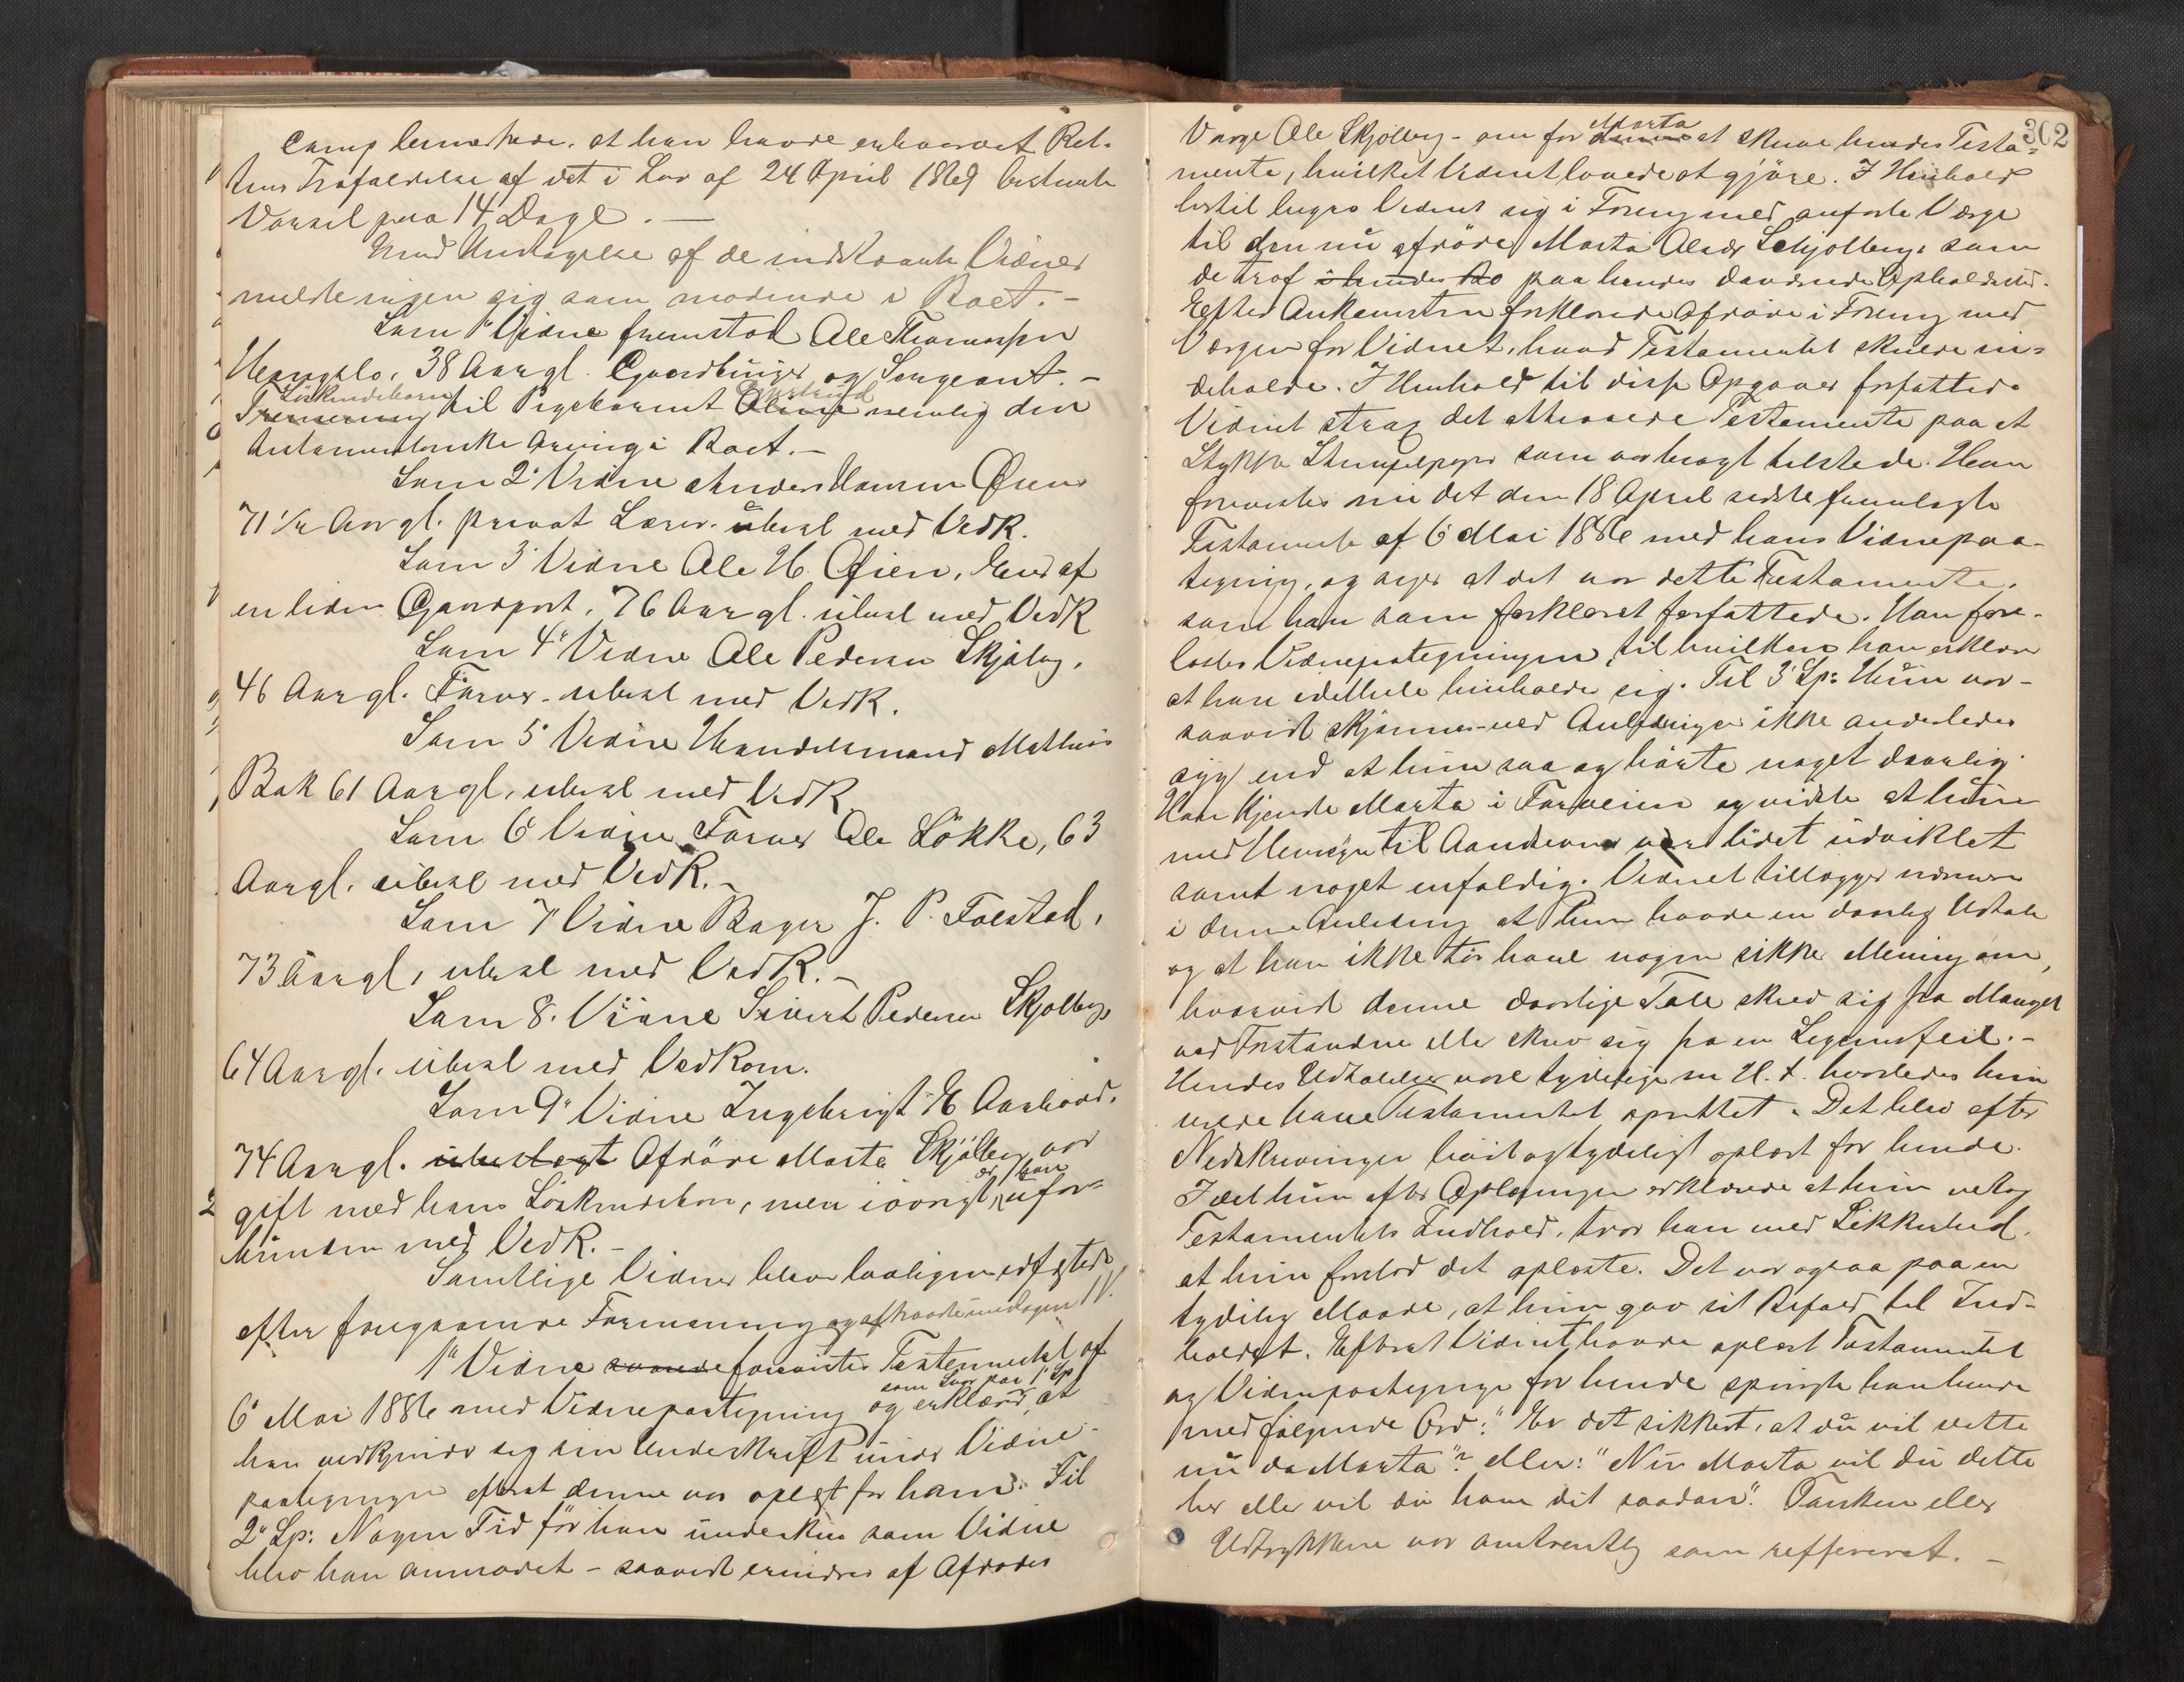 Camp bemærkede, at han havde erhvervet Ret-
tens Frafaldelse af det i Lov af 24 April 1869 bestemte
Varsel paa 14 Dage. —
Med Undtagelse af de indkaldte Vidner
meldte ingen sig som mødende i Ræt. -
Som 1' Vidne fremstod Ole Thomassen
38 Aar gl. Gaardbruger og Sergeant. -
Söskendebarn
til Pigebarnet nemlig den
testamentariske Arving i Ræt. -
Som 2' Vidne Anders Hansen Øien
71 1/2 Aar gl. privat Lærer. ubesl med VedK.
Som 3' Vidne Ole H. Øien, Eier af
en liden Gaardpart, 76 Aar gl. ubesl med VedK
Som 4" Vidne Ole Pedersen Skjølberg,
46 Aar gl. Farver. ubesl med VedK.
Som 5' Vidne Handelsmand Mathias
Bak 61 Aar gl, ubesl med VedK
Som 6' Vidne Farver Ole Lökke, 63
Aar gl. ubesl med VedK. -
Som 7" Vidne Bager J. P. Folstad,
73 Aar gl, ubesl med VedK. -
Som 8. Vidne Sivert Pedersen Skjolberg
64 Aar gl. ubesl med VedKom.
Som 9" Vidne Ingebrigt E Aarhoad.
74 Aar gl. ubeslægt Afdöde Marta Skjölberg var
er han
gift med hans Söskendebarn, men iövrigt ufor-
bunden med VedK. -
Samtlige Vidner blev lovligen edfæstede
efter foregaaende Formaning og aftraadte undtagen 1 V.
1" Vidne svarede forevistes Testamentet af
som Svar paa 1" Sp
6' Mai 1886 med Vidnepaategning og erklærer, at
han vedkjender sig sin Underskrift under Vidne-
paategningen efterat denne var oplæst for ham. Til
2" Sp: Nogen Tid för han underskrev som Vidne
blev han anmodet - saavidt erindres af Afdödes
302
Marta
Værge Ole Skjölberg - om for denne at skrive hendes Testa=
mente, hvilket Vidnet lovede at gjöre. I Henhold
hertil begav Vidnet sig i Foreng med anförte Værge
til den nu afdöde Marta Olsdr Schjolberg, som
de traf i hendes Bo paa hendes daværende Opholdssted.
Efter Ankomsten forklarede Afdöde i Foreng med
Værgen for Vidnet, hvad Testamentet skulde in=
deholde. I Henhold til disse Opgaver forfattede
Vidnet strax det attesterede Testamente paa et
Stykke Stempelpapir som var bragt tilstede. Han
forevistes nu det den 18 April sidste fremlagte
Testamente af 6' Mai 1886 med hans Vidnepaa-
tegning, og siger at det var dette Testamente,
som han som forklaret forfattede. Han fore-
læstes Vidnepategningen, til hvilken han erklærer
at han idethele henholder sig. Til 3' Sp: Hun var -
saavidt skjönnes - ved Anledningen ikke anderledes
syg end at hun saa og hörte noget daarlig.
Han kjendte Marta i Forveien og vidste at hun
med Hensyn til Aandsevner var lidet udviklet
samt noget enfoldig. Vidnet tillægger nærmere
i denne Anledning at hun havde en daarlig Udtale
og at han ikke tör have nogen sikker Mening om,
hvorvidt denne daarlige Tale skrev sig fra Mangel
ved Forstanden eller skrev sig fra en Legemsfeil. -
Hendes Udtalelser vare tydelige m H. t. hvorledes hun
vilde have Testamentet opsattet. Det blev efter
Nedskrivningen höit og tydeligt oplæst for hende.
Idet hun efter Oplæsningen erklærede at hun vedtog
Testamentets Indhold, tror han med Sikkerhed,
at hun forstod det oplæste. Det var ogsaa paa en
tydelig Maade, at hun gav sit Bifald til Ind-
holdet. Efterat Vidnet havde oplæst Testamentet
og Vidnepaategningen for hende spurgte han hende
med fölgende Ord: "Er det sikkert, at du vil dette
nu da Marta"? eller: "Nu Marta vil du dette
her eller vil du have det saadan". Tanken eller
Udtrykkene var omtrentlig som refereret. -